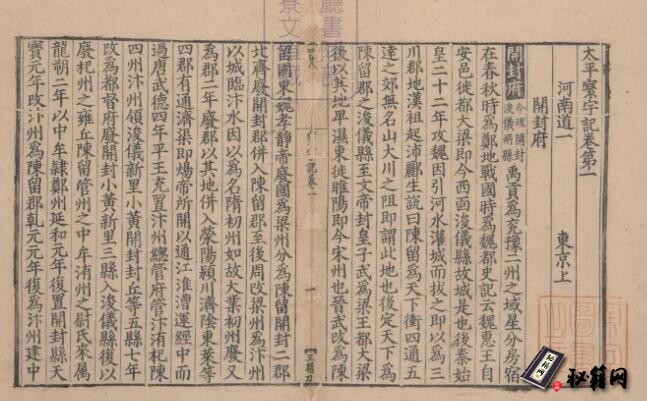 太平寰宇記卷第一
河南道一
東京上
開封府
開封府今理開封浚儀兩縣禹貢爲兗豫二州之域星分房宿
在春秋時爲鄭地戰國時爲魏都史記云魏惠王自
安邑徙都大梁即今西面浚儀縣故城是也後秦始
皇二十二年攻魏因引河水灌城而拔之即以爲三
川郡地漢祖起沛酈生說曰陳留爲天下衝四通五
達之郊無名山大川之阻即謂此地也後定天下爲
陳留郡之浚儀縣至文帝封皇子武爲梁王都大梁
後以其地卑濕東徙睢陽即今宋州也晉武改爲陳
留國東魏孝靜帝廢國爲梁州分爲陳留開封二郡
北齊廢開封郡併入陳留郡至後周改梁州爲汴州
以城臨汴水因以爲名隋初州如故大業初州廢又
爲郡二年廢郡以其地併入滎陽潁川濟陰東萊等
四郡有通濟渠即煬帝所開以通江淮漕運經中而
過唐武德四年平王充置汴州總管府管汴洧杞陳
四州汴州領浚儀新里小黃開封封丘等五縣七年
改爲都督府廢開封小黃新里三縣入浚儀縣復以
廢杞州之雍丘陳留管州之中牟洧州之尉氏來屬
龍朔二年以中牟隸鄭州延和元年復置開封縣天
寶元年改汴州爲陳留郡乹元元年復爲汴州建中
記卷一
一
秘籍网